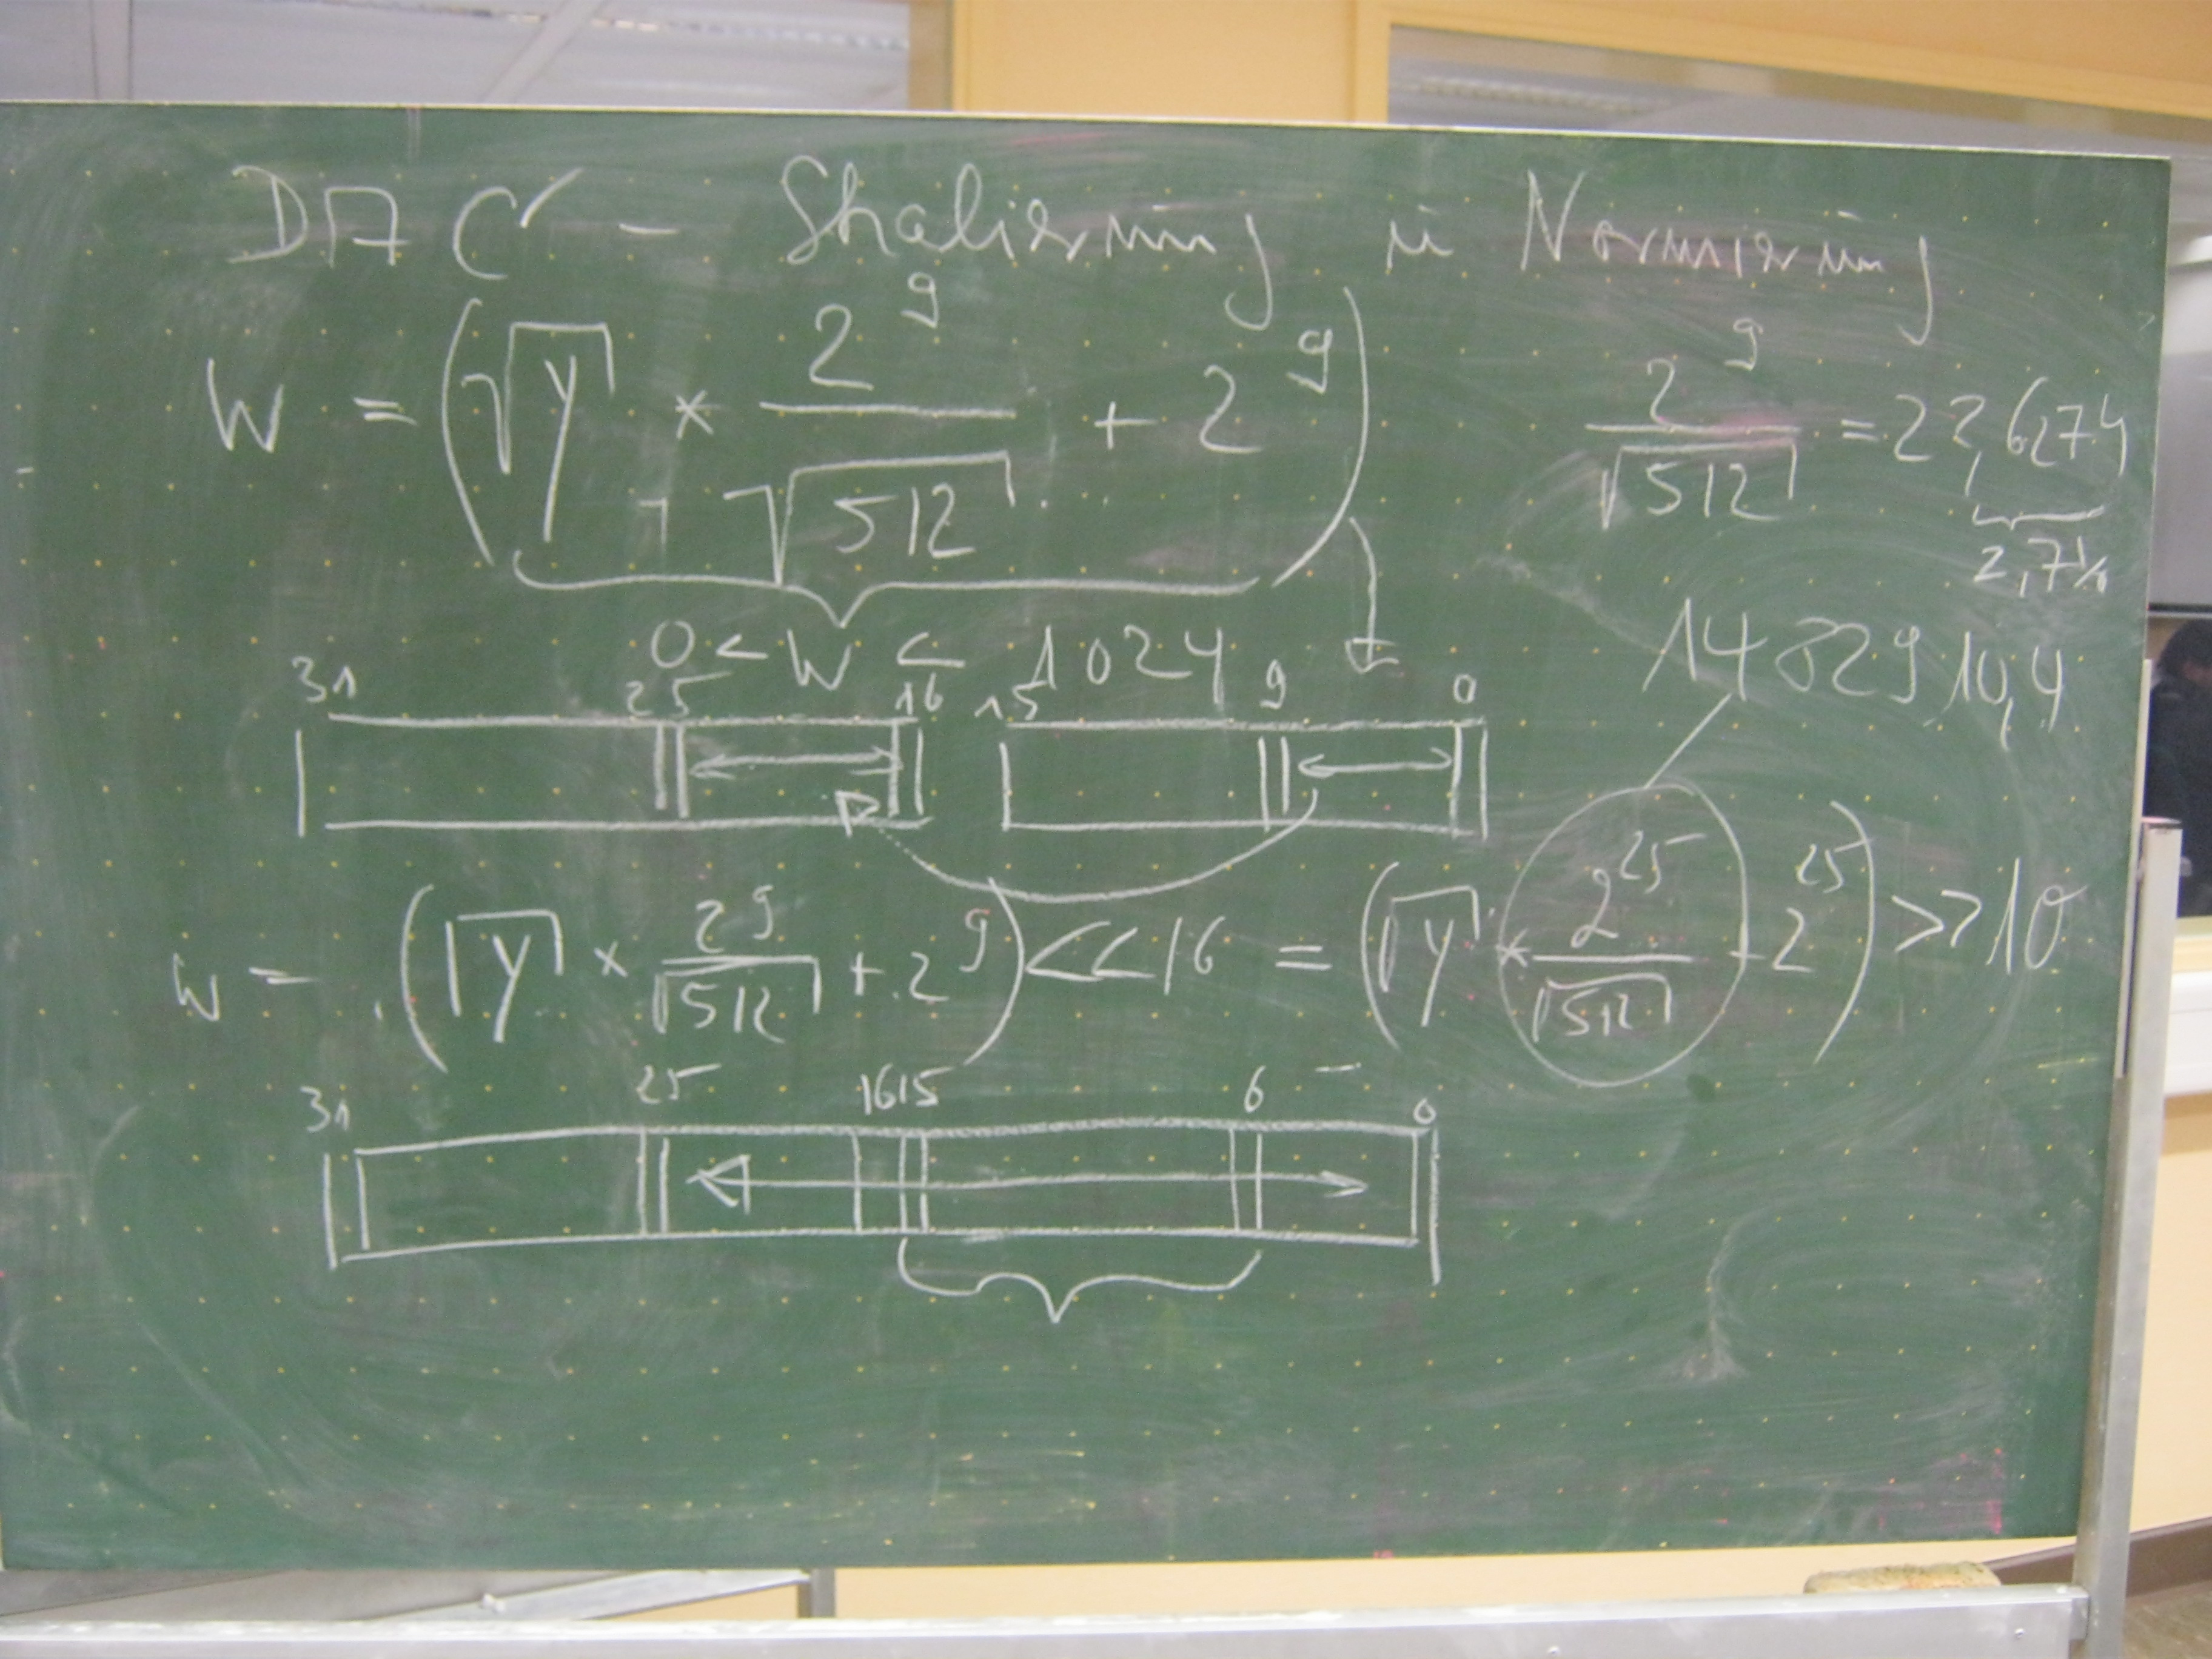 DAC - Skalierung u Normierung
W = (√y * 2^9 / √512 + 2^9)
2^9 / √512 = 22,6274
2,7%
0 < W < 1024
1482910,4
31 25 16 15 9 0
W = (√y * 2^9 / √512 + 2^9) << 16 = (√y * 2^25 / √512 + 2^25) >> 10
31 25 16 15 6 0